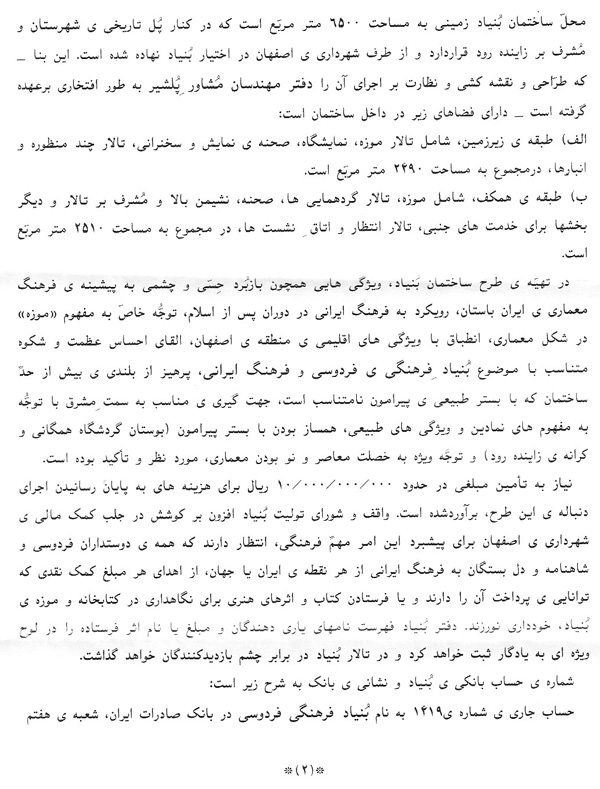 محلّ ساختمان بُنیاد زمینی به مساحت ۶۵۰۰ متر مربّع است که در کنار پُل تاریخی ی شهرستان و
مُشرف بر زاینده رود قراردارد و از طرف شهرداری ی اصفهان در اختیار بُنیاد نهاده شده است. این بنا ــ
که طرّاحی و نقشه کشی و نظارت بر اجرای آن را دفتر مهندسان مُشاور ِپُلشیر به طور افتخاری برعهده
گرفته است ــ دارای فضاهای زیر در داخل ساختمان است:
الف) طبقه ی زیرزمین، شامل تالار موزه، نمایشگاه، صحنه ی نمایش و سخنرانی، تالار چند منظوره و
انبارها، درمجموع به مساحت ۲۴۹۰ متر مربّع است.
ب) طبقه ی همکف، شامل موزه، تالار گردهمایی ها، صحنه، نشیمن بالا و مُشرف بر تالار و دیگر
بخشها برای خدمت های جنبی، تالار انتظار و اتاق ِ نشست ها، در مجموع به مساحت ۲۵۱۰ متر مربّع
است.
در تهیّه ی طرح ساختمان بُنیاد، ویژگی هایی همچون بازبُرد حِسّی و چشمی به پیشینه ی فرهنگ
معماری ی ایران باستان، رویکرد به فرهنگ ایرانی در دوران پس از اسلام، توجُّه خاصّ به مفهوم «موزه»
در شکل معماری، انطباق با ویژگی های اقلیمی ی منطقه ی اصفهان، القای احساس عظمت و شکوه
متناسب با موضوع بُنیاد ِفرهنگی ی فردوسی و فرهنگ ایرانی، پرهیز از بلندی ی بیش از حدّ
ساختمان که با بستر طبیعی ی پیرامون نامتناسب است، جهت گیری ی مناسب به سمت ِمشرق با توجُّه
به مفهوم های نمادین و ویژگی های طبیعی، همساز بودن با بستر پیرامون (بوستان گردشگاه همگانی و
کرانه ی زاینده رود) و توجّه ویژه به خصلت معاصر و نو بودن معماری، مورد نظر و تأکید بوده است.
نیاز به تأمین مبلغی در حدود ۱۰/۰۰۰/۰۰۰/۰۰۰ ریال برای هزینه های به پایان رسانیدن اجرای
دنباله ی این طرح، برآوردشده است. واقف و شورای تولیت بُنیاد افزون بر کوشش در جلب کمک مالی ی
شهرداری ی اصفهان برای پیشبرد این امر مهمّ فرهنگی، انتظار دارند که همه ی دوستداران فردوسی و
شاهنامه و دل بستگان به فرهنگ ایرانی از هر نقطه ی ایران یا جهان، از اهدای هر مبلغ کمک نقدی که
توانایی ی پرداخت آن را دارند و یا فرستادن کتاب و اثرهای هنری برای نگاهداری در کتابخانه و موزه ی
بُنیاد، خودداری نورزند. دفتر بُنیاد فهرست نامهای یاری دهندگان و مبلغ یا نام اثر فرستاده را در لوح
ویژه ای به یادگار ثبت خواهد کرد و در تالار بُنیاد در برابر چشم بازدیدکنندگان خواهد گذاشت.
شماره ی حساب بانکی ی بُنیاد و نشانی ی بانک به شرح زیر است:
حساب جاری ی شماره ی۱۴۱۹ به نام بُنیاد فرهنگی فردوسی در بانک صادرات ایران، شعبه ی هفتم
*(۲)*